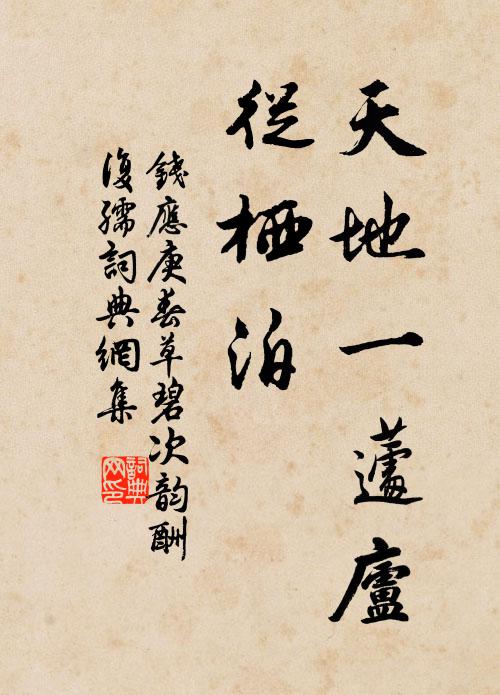 天地一蘧廬
從栖泊
錢應庚春草碧次韵酬
復孺詞典網集
詞典
网印